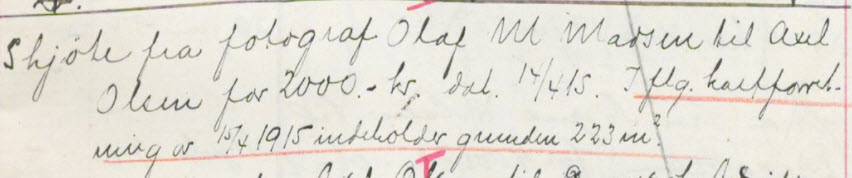 Skjøte fra fotograf Olaf M Madsen til Axel
Olsen for 2000.- kr. dat. 14/4 15. Iflg. kartforret-
ning av 15/4 1915 indeholder grunden 223 m²
Axel Ol til